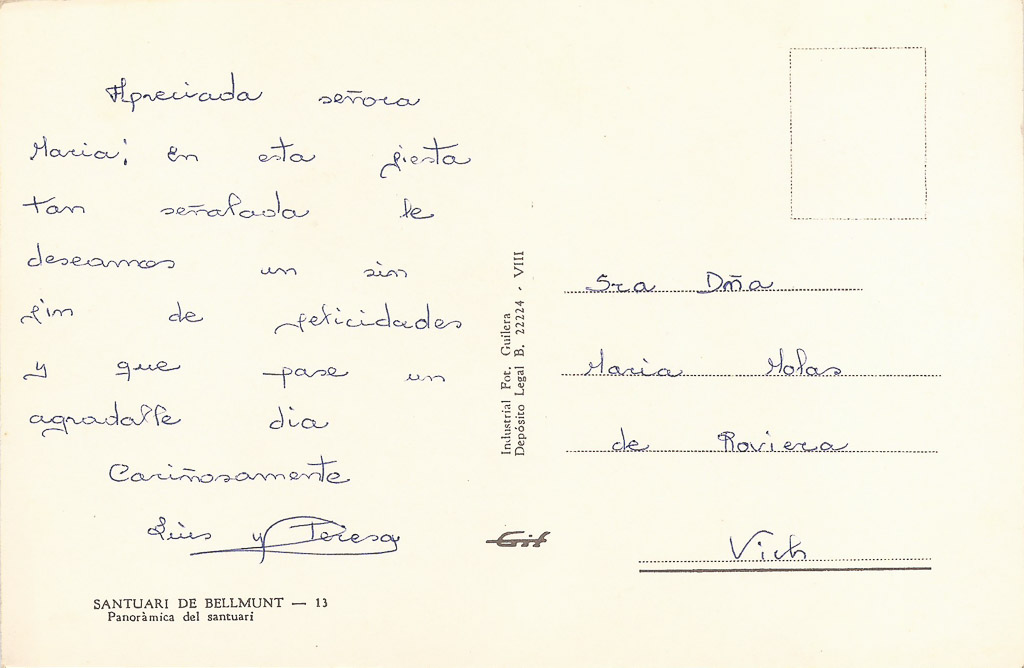 Apreciada señora
Maria; En esta fiesta
tan señalada le
deseamos un sin
fin de felicidades
y que pase un
agradable dia
Cariñosamente
Luis y Teresa
SANTUARI DE BELLMUNT — 13
Panoràmica del santuari
Industrial Fot. Guilera
Depósito Legal B. 22224 - VIII
Gif
Sra Dña
Maria Molas
de Roviera
Vich